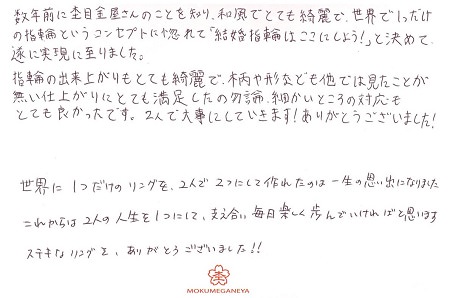 数年前に杢目金屋さんのことを知り、和風でとても綺麗で、世界で1つだけ
の指輪というコンセプトに惚れて「結婚指輪はここにしよう!」と決めて、
遂に実現に至りました。
指輪の出来上がりもとても綺麗で、木柄や形なども他では見たことが
無い仕上がりにとても満足したの勿論、細かいところの対応も
とても良かったです。2人で大事にしていきます!ありがとうございました!
世界に1つだけのリングを、2人で2つにして作れたのは一生の思い出になりました
これからは2人の人生を1つにして、支え合い毎日楽しく歩んでいければと思います
ステキなリングを、ありがとうございました!!
MOKUMEGANEYA